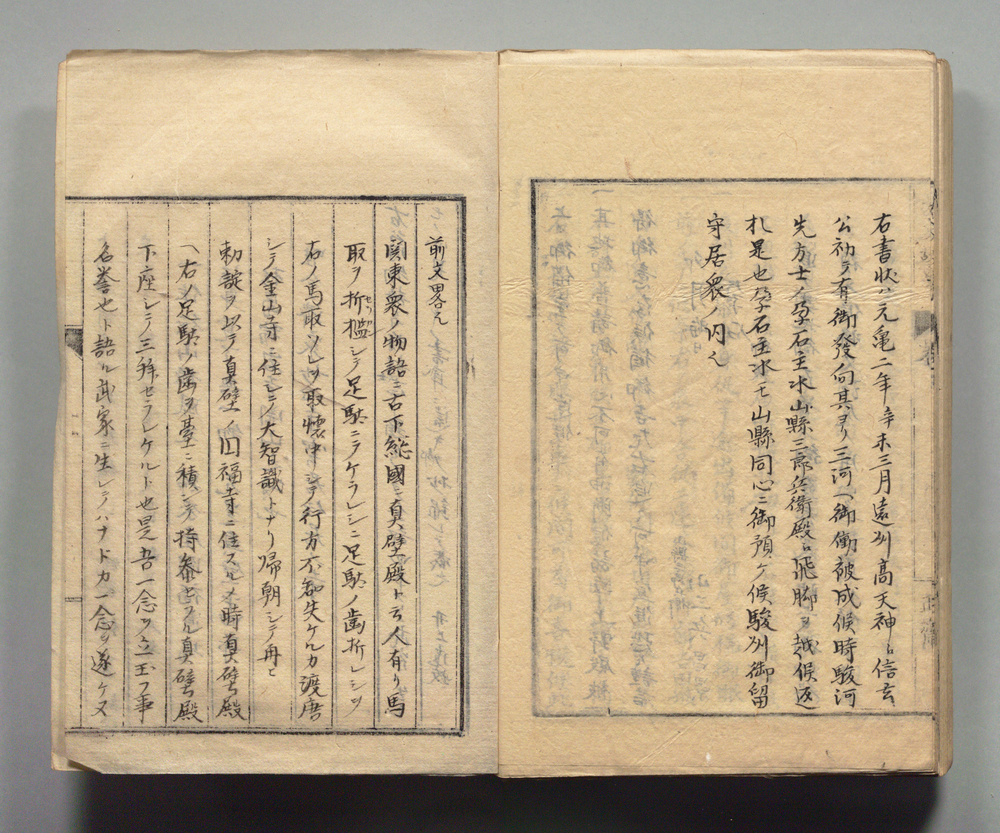 右書状ハ元亀二年辛未三月遠州高天神ニ信玄
公初テ有御發向其ヨリ三河ヘ御働被成候時駿河
先方士ノ孕石主水山縣三郎兵衛殿ニ飛脚ヲ越候返
札是也孕石主水モ山縣同心ニ御預ケ候駿州御留
守居衆ノ内也
前文畧之
関東衆ノ物語ニ古下総國ニ真壁殿ト云人有リ馬
取ヲ折檻シテ足駄ニテケラレシニ足駄ノ歯折レシヲ
右ノ馬取ソレヲ取懐中シテ行方不知失ケルカ渡唐
シテ金山寺ニ住シテ大智識トナリ帰朝シテ再ヒ
勅諚ヲ以テ真壁ノ旧福寺ニ住スル時真壁殿
ヘ右ノ足駄ノ歯ヲ臺ニ積ンテ持参セラル真壁殿
下座シテ三拝セラレケルト也是吾一念ヲ立玉フ事
名誉也ト語ル武家ニ生レテハナトカ一念ヲ遂ケヌ